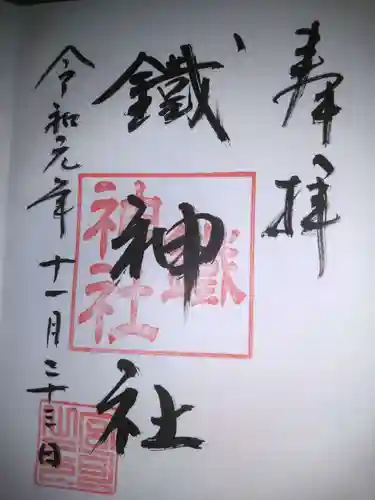 奉拝
鐵神社
令和元年十一月二十三日
鐵
神社